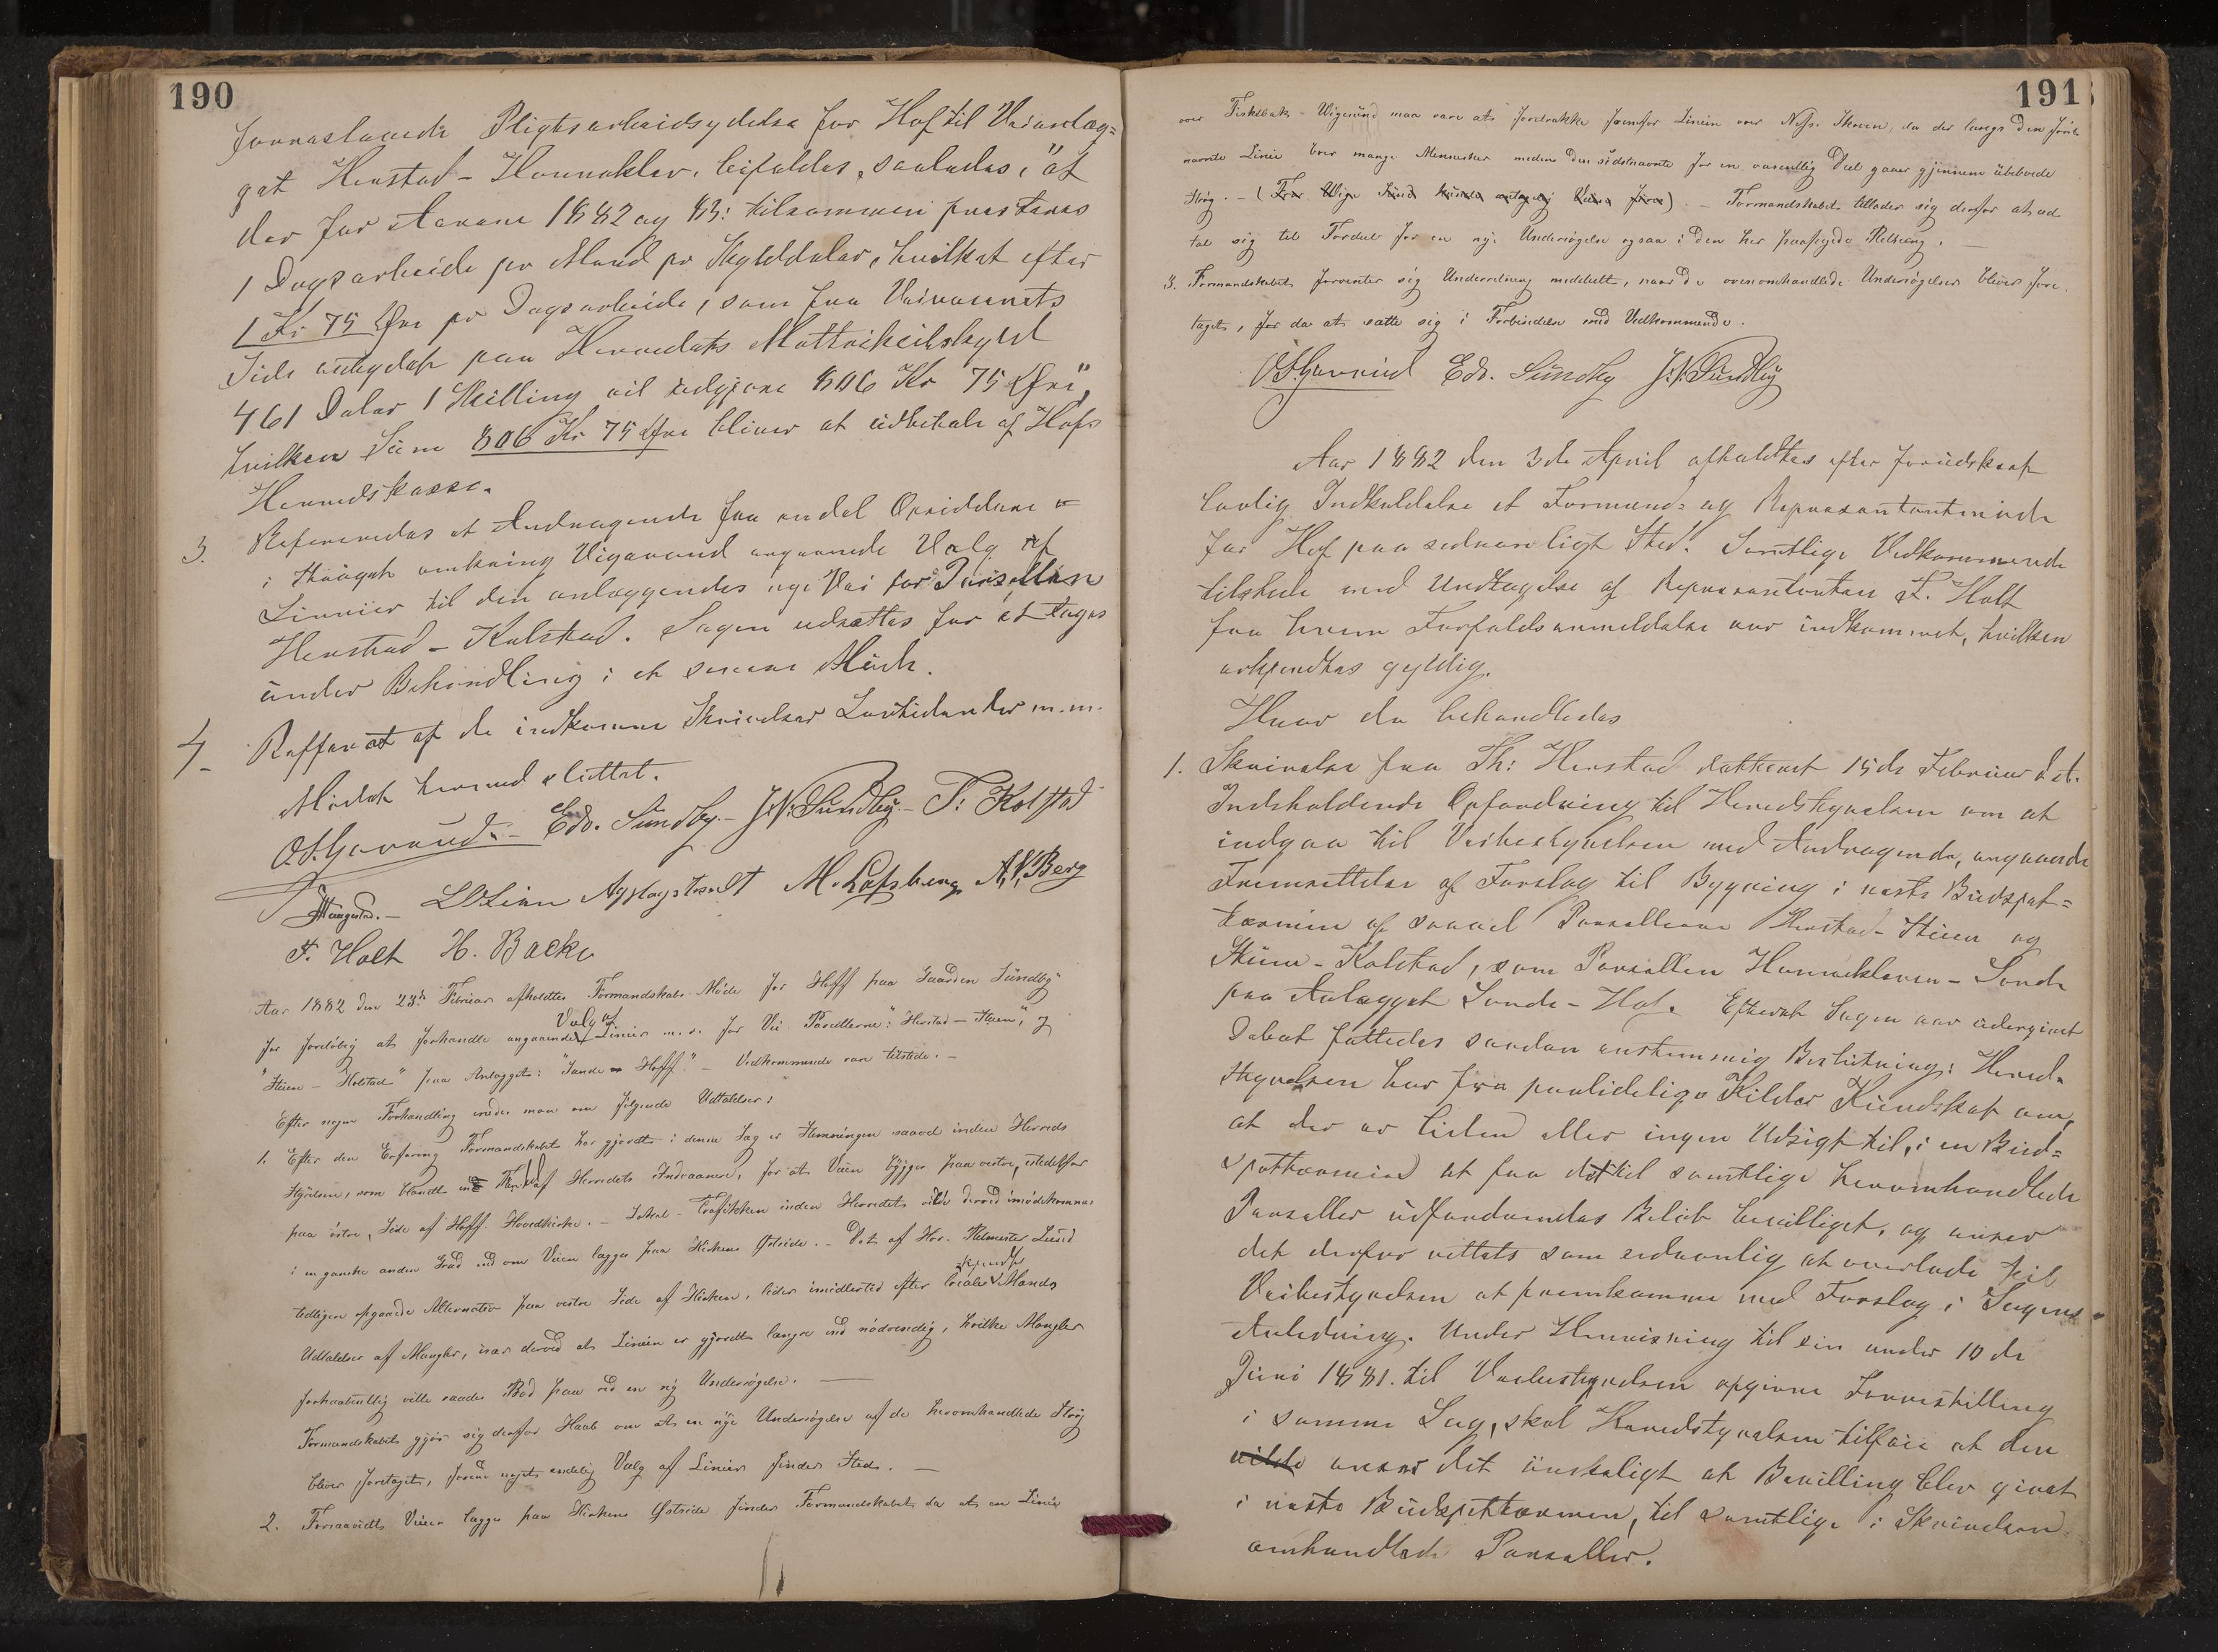 190
foranstaaende Pligtsarbeidsydelse for Hof til Veianlæg=
get Henstad – Henneklev, bifaldes, saaledes, "at
der for Aarene 1882 og 83: tilsammen præsteres
1 Dagsarbeide pr Mand pr Skylddaler, hvilket efter
1 Kr 75 Øre pr Dagsarbeide, som fra Veivæsenets
Side antydet paa Herredets Matrikelskyld
461 Daler 1 Skilling vil udgjøre 806 Kr 75 Øre",
hvilken Sum 806 Kr 75 Øre bliver at udbetale af Hofs
Herredskasse.
3. Refereredes et Andragende fra endel Opsiddere
i Strøget omkring Vigesund angaaende Valg af
Linnier til den anlæggendes nye Vei for Parsellen
Henstad – Kolstad. Sagen udsættes for at tages
under Behandling i et senere Møde.
4 Refferat af de indkomne Skrivelser Lovtidender m.m.
Mødet hermed sluttet.
Edv. Sundby.– J. N. Sundby – T: Kolstad
L O Linn M. Lofsberg A. N. Berg
F. Holt H. Backe
Aar 1882 den 23de Februar afholdtes Formandskabs-Møde for Hoff paa Gaarden Sundby
for foreløbig at forhandle angaaende Valg af Linier m.v. for Vei-Parcellerne: "Henstad – Stuen", og
"Stuen – Kolstad" paa Anlægget: "Sande – Hoff." – Vedkommende vare tilstede. –
Efter nogen Forhandling enedes man om følgende Udtalelser:
1. Efter den Erfaring Formandskabet har gjordt i denne Sag er Stemningen saavel inden Herreds
Styrelsen, som blandt en Flerhed af Herredets Indvaanere, for at Veien bygges paa vestre, istedetfor
paa østre, Side af Hoff Hovedkirke. – Lokal-Trafikken inden Herredet vilde derved imødekommes
i en ganske anden Grad end om Veien lægges paa Kirkens Østside. – Det af Hr.
tidligere opgaaede Alternativ paa vestre Side af Kirken, lider imidlertid efter local kyndte Mænds
Udtalelser af Mangler, især derved at Linien er gjordt længre end nødvendig, hvilke Mangler
forhaabentlig ville raades Bod paa ved en ny Undersøgelse. —
Formandskabet gjør sig derfor Haab om at en nye Undersøgelse af de heromhandlede Strøg
bliver foretaget, førend noget endelig Valg af Linier finder Sted. —
2. Forsaavidt Veien lægges paa Kirkens Østside finder Formandskabet da at en Linie
191
over Fiskebæk – Wigesund maa være at foretrække fremfor Linien over Skoven, da der langs den først
nævnte Linie boer mange Mennesker medens den sidstnævnte for en væsentlig Deel gaaer gjennem ubeboede
Strøg. – – Formandskabet tillader sig derfor at ud
tale sig til Fordeel for en nye Undersøgelse ogsaa i den her paapegede Retning. —
3. Formandskabet forventer sig Underretning meddeelt, naar de ovenomhandlede Undersøgelser bliver fore-
taget, for da at sætte sig i Forbindelse med Vedkommende.
Edv. Sundby J. N. Sundby
Aar 1882 den 3de April afholdtes efter forudskeet
lovlig Indkaldelse et Formænd= og Repræsentantmøde
for Hof paa sedvanligt Sted. Samtlige Vedkommende
tilstede med Undtagelse af Repræsentanten F. Holt
fra hvem Forfaldsanmeldelse var indkommet, hvilken
erkjendtes gyldig.
Hvor da behandledes
1. Skrivelse fra Th: Henstad datteret 15de Februar d.A.
Indeholdende Opfordring til Heredstyrelsen om at
indgaa til Veibestyrelsen med Andragende, angaaende
Fremsettelse af Forslag til Bygning i næste Budsjet=
termin af saavel Parsellerne Henstad – Stuen og
Stuen – Kolstad, som Parsellen Hennekleven – Sande
paa Anlægget Sande – Hof. Efterat Sagen var undergivet
Debat fattedes saadan enstemmig Beslutning: Hered-
styrelsen har fra paalidelige Kilder Kundskab om,
at der er liden eller ingen Udsigt til, i en Bud=
sjettermin at faa det til samtlige heromhandlede
Parseller udfordrendes Beløb bevilliget, og anser
det derfor rettets som sedvanlig at overlade til
Veibestyrelsen at fremkomme med Forslag i Sagens
Anledning. Under Henvisning til sin under 10de
Juni 1881. til Veibestyrelsen afgivne Forrestilling
i samme Sag, skal Heredstyrelsen tilføie at den
vilde anser det ønskeligt at Bevilling blev givet
i næste Budsjettermin, til samtlige i Skrivelsen
omhandlede Parseller.